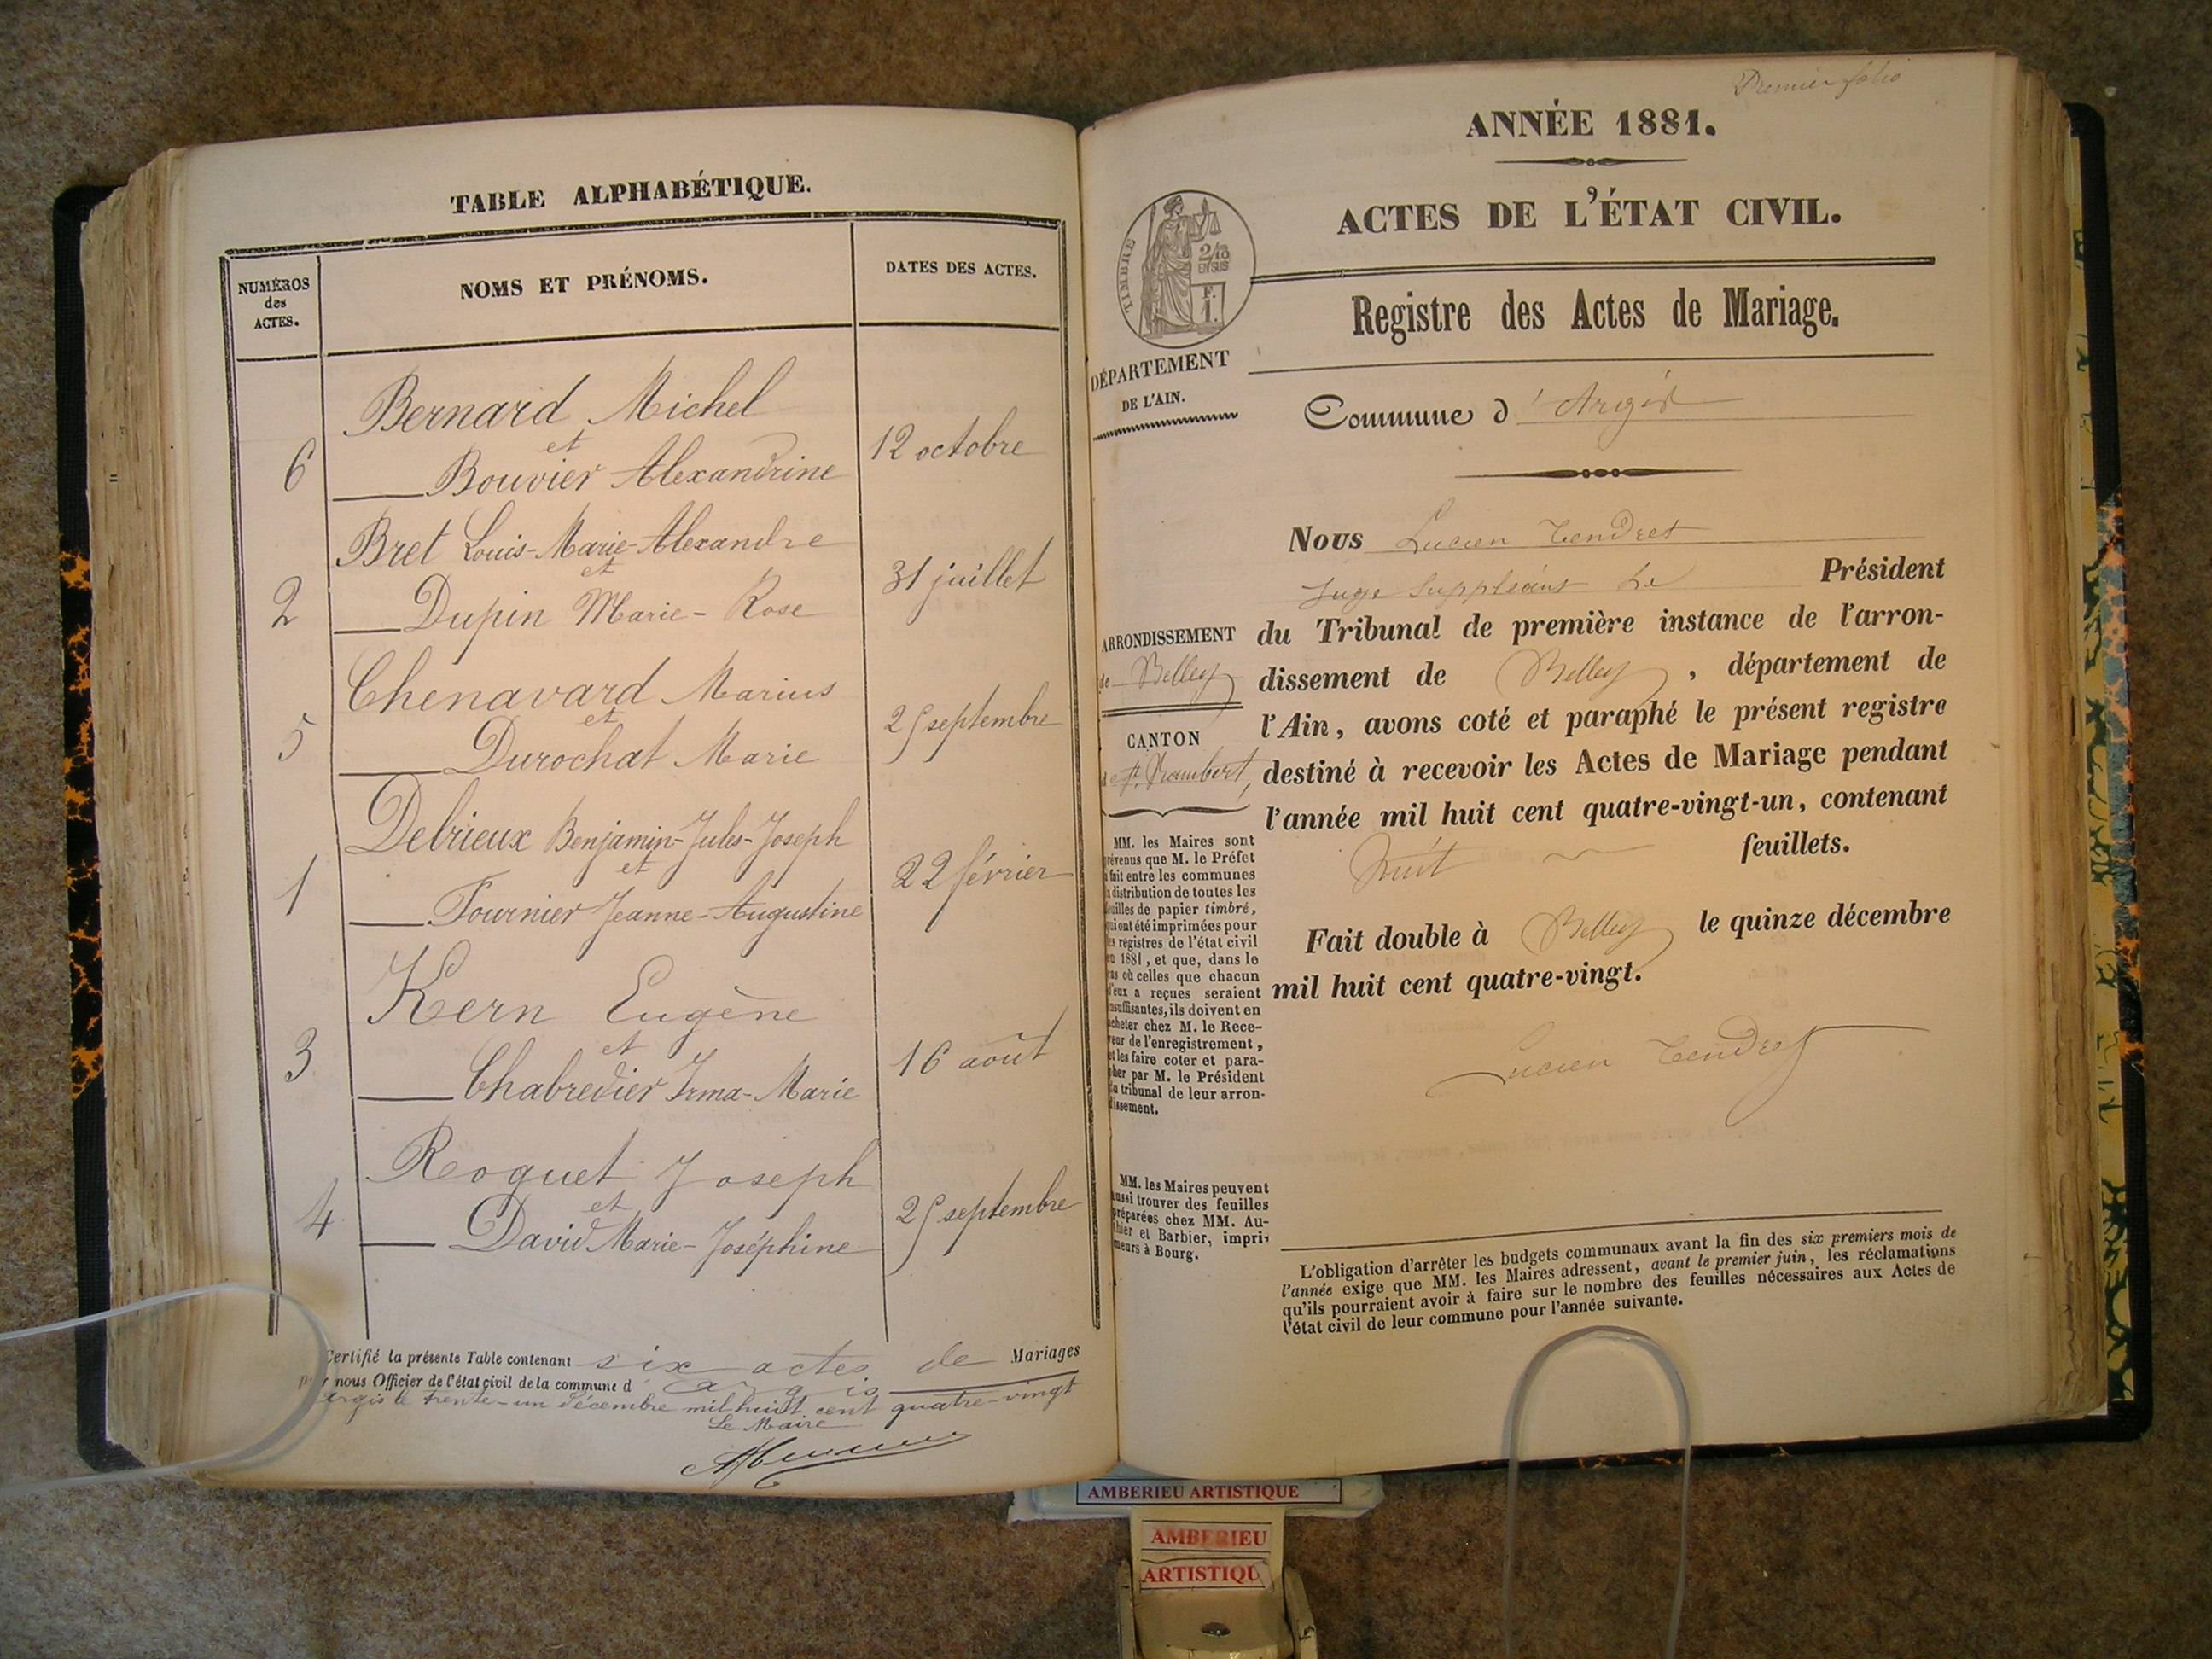 TABLE ALPHABÉTIQUE.
NUMÉROS
des
ACTES.
NOMS ET PRÉNOMS.
DATES DES ACTES.
Bernard Michel
et
6 Bouvier Alexandrine 12 octobre
Bret Louis-Marie-Alexandre
et
2 Dupin Marie-Rose 31 juillet
Chenavard Marius
et
5 Durochat Marie 25 septembre
Debrieux Benjamin-Jules-Joseph
et
1 Fournier Jeanne-Augustine 22 février
Kern Eugène
et
3 Chabredier Irma-Marie 16 août
Roquet Joseph
et
4 David Marie-Joséphine 25 septembre
Certifié la présente Table contenant six actes de Mariages
par nous Officier de l'état civil de la commune d'Argis
argis le trente-un décembre mil huit cent quatre-vingt
Le Maire
Premier folio
ANNÉE 1881.
ACTES DE L'ÉTAT CIVIL.
TIMBRE
2/10
EN SUS
F.
1.
Registre des Actes de Mariage.
DÉPARTEMENT
DE L'AIN.
Commune d'Argis
Nous Lucien Tendret
Juge Suppléant Le Président
du Tribunal de première instance de l'arron-
dissement de Belley, département de
l'Ain, avons coté et paraphé le présent registre
destiné à recevoir les Actes de Mariage pendant
l'année mil huit cent quatre-vingt-un, contenant
huit feuillets.
Fait double à Belley le quinze décembre
mil huit cent quatre-vingt.
Lucien Tendret
ARRONDISSEMENT
de Belley
CANTON
de St. Rambert,
MM. les Maires sont
prévenus que M. le Préfet
a fait entre les communes
la distribution de toutes les
feuilles de papier timbré,
qui ont été imprimées pour
les registres de l'état civil
en 1881, et que, dans le
cas où celles que chacun
d'eux a reçues seraient
insuffisantes, ils doivent en
acheter chez M. le Rece-
veur de l'enregistrement,
et les faire coter et para-
pher par M. le Président
du tribunal de leur arron-
dissement.
MM. les Maires peuvent
aussi trouver des feuilles
préparées chez MM. Au-
thier et Barbier, impri-
meurs à Bourg.
L'obligation d'arrêter les budgets communaux avant la fin des six premiers mois de
l'année exige que MM. les Maires adressent, avant le premier juin, les réclamations
qu'ils pourraient avoir à faire sur le nombre des feuilles nécessaires aux Actes de
l'état civil de leur commune pour l'année suivante.
AMBERIEU ARTISTIQUE
AMBERIEU
ARTISTIQU